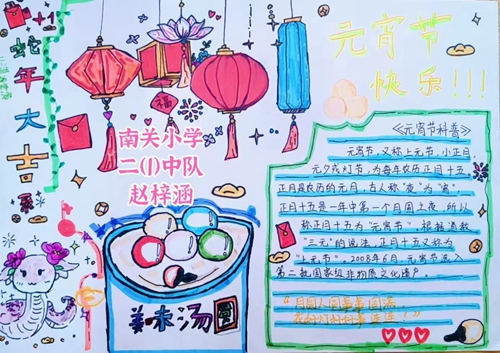 +1
蛇年大吉
元宵节
快乐!!!
福
南关小学
二(1)中队
赵梓涵
《元宵节科普》
元宵节,又称上元节,小正月,
元夕或灯节,为每年农历正月十五,
正月是农历的元月,古人称"夜"为"宵",
正月十五是一年中第一个月圆之夜,所以
称正月十五为"元宵节"。根据道教
"三元"的说法,正月十五又称为
"上元节"。2008年6月,元宵节选入
第二批国家级非物质文化遗产。
"月圆人圆事事圆满
花好人好好事连连!"
美味汤圆